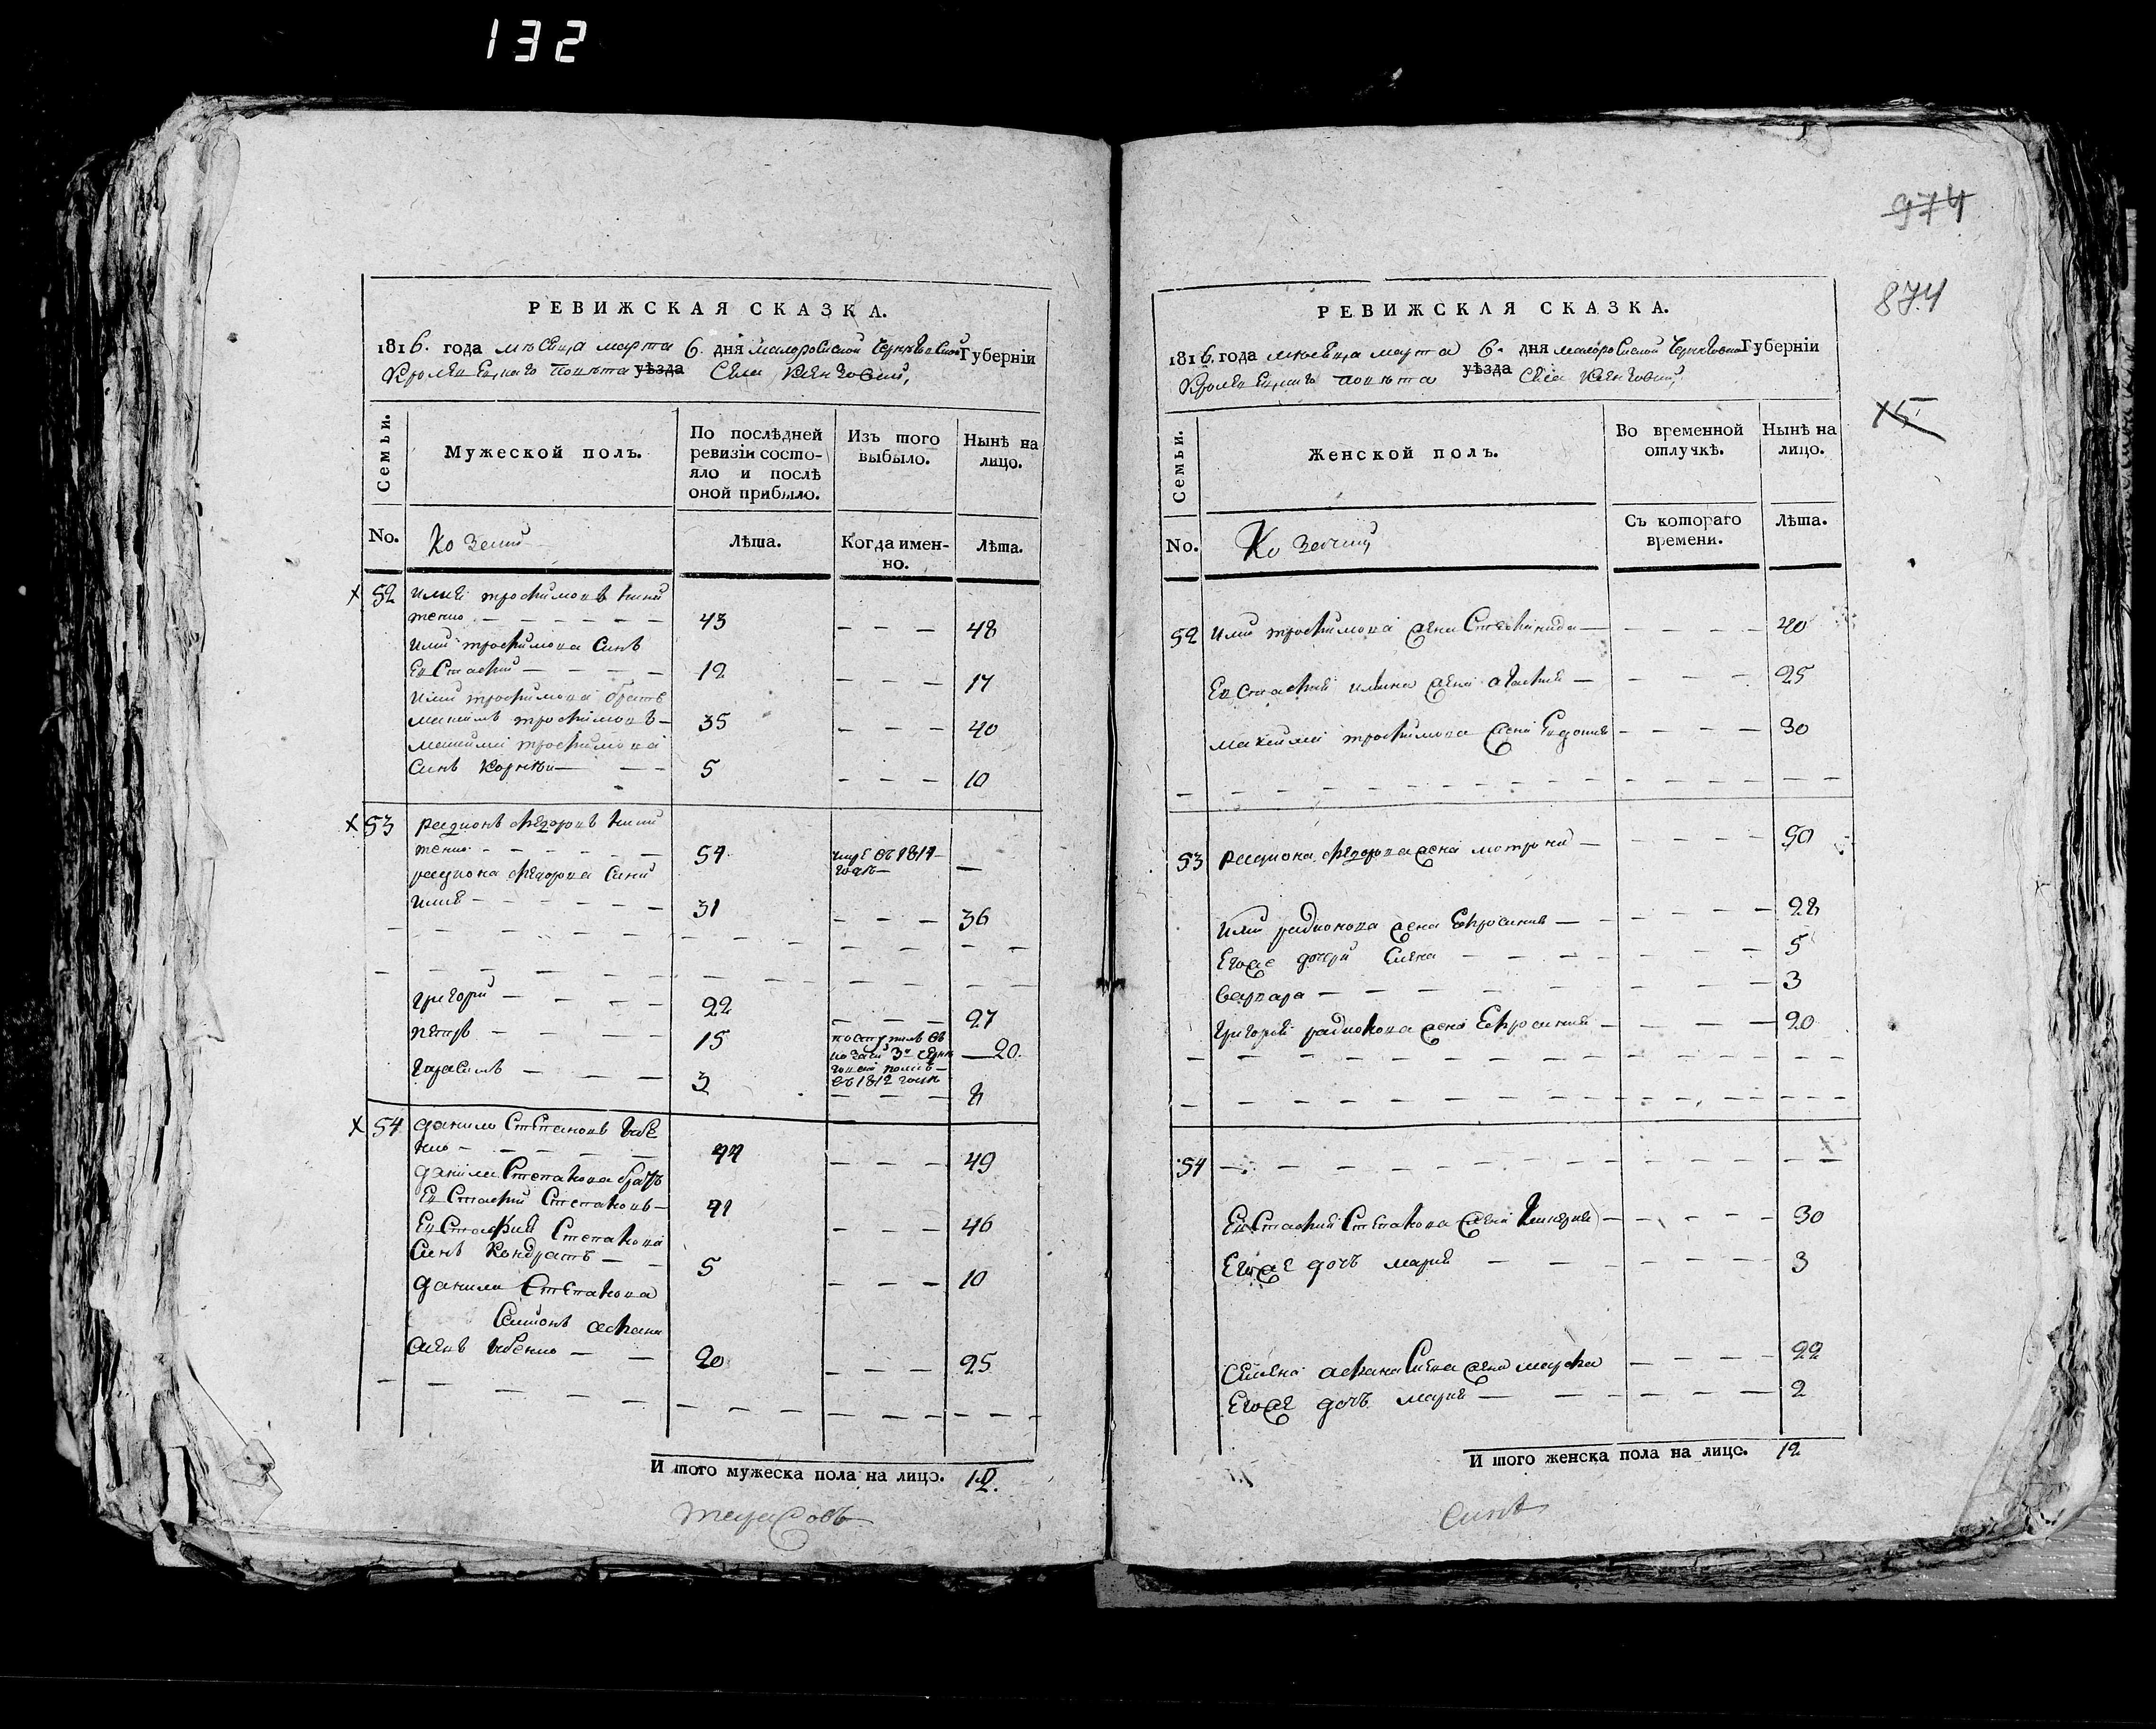 132
РЕВИЖСКАЯ СКАЗКА.
1816. года месеца марта 6. дня малоросиской Черниговской Губерніи
Кролевецкаго повета уѣзда Села
Семьи.
Мужеской полъ.
По послѣдней ревизіи состояло и послѣ оной прибыло.
Изъ того выбыло.
Нынѣ на лицо.
No.
Козаки
Лѣта.
Когда именно.
Лѣта.
52 илия трофимовъ
43 48
илии трофимова синъ
Евстафий 12 17
илии трофимова братъ
максимъ трофимовъ 35 40
максима трофимова
синъ корнѣи 5 10
53 радионъ федоровъ
54 умре въ 1814
годѣ
радиона федорова сини
илия 31 36
григорий 22 27
петръ 15 поступилъ въ 20
3й
въ 1812 годѣ
гарасимъ 3 8
54 данило Степановъ
44 49
данила Степанова братъ
Евстафий Степановъ 41 46
Евстафия Степанова
синъ кондратъ 5 10
данила Степанова
афана
20 25
И того мужеска пола на лицо. 12.
тарасовъ
974
874
РЕВИЖСКАЯ СКАЗКА.
1816. года месеца марта 6. дня малоросиской Черниговской Губерніи
Кролевецкаго повета уѣзда Села
Семьи.
Женской полъ.
Во временной отлучкѣ.
Нынѣ на лицо.
No.
Съ котораго времени.
Лѣта.
52 илии трофимова жена Стефанида 40
Евстафия илина жена агафия 25
максима трофимова жена Евдокия 30
53 радиона федорова жена матрона 50
илии радионова жена Ефросиния 28
Егоже дочери Елена 5
варвара 3
григория радионова жена Ефросиния 20
54
Евстафия Степанова жена 30
Егоже дочь мария 3
Семена афанасиева жена марфа 22
Егоже дочь мария 2
И того женска пола на лицо. 12
синъ